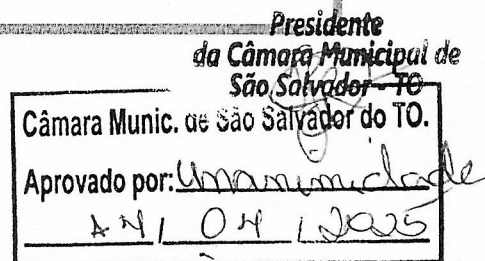 Presidente
da Câmara Municipal de
São Salvador - TO
Câmara Munic. de São Salvador do TO.
Aprovado por: Unanimidade
/ 04 / 2025